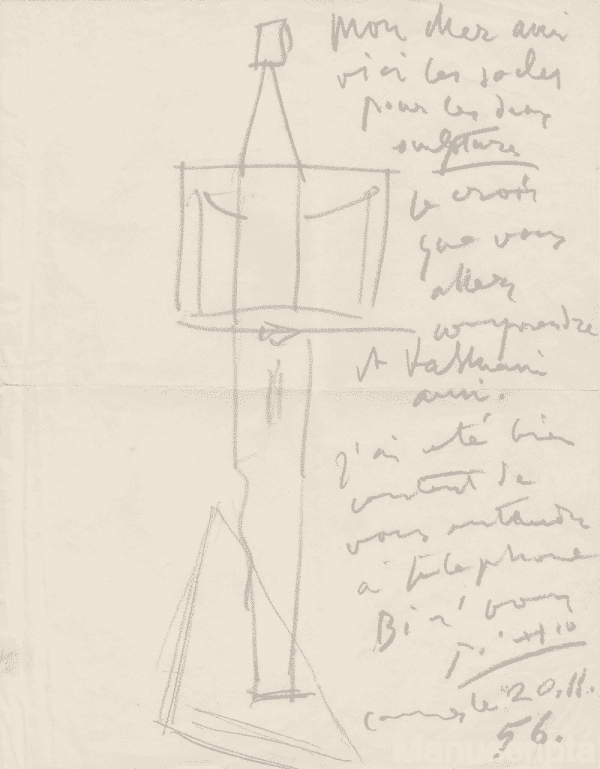 mon cher ami
voici les socles
pour les deux
sculpture
je crois
que vous
allez
comprendre
et
aussi.
j'ai eté bien
content de
vous entendre
a telephone
Bi a' vous
cannes le 20.11.
56.
Manuscripta